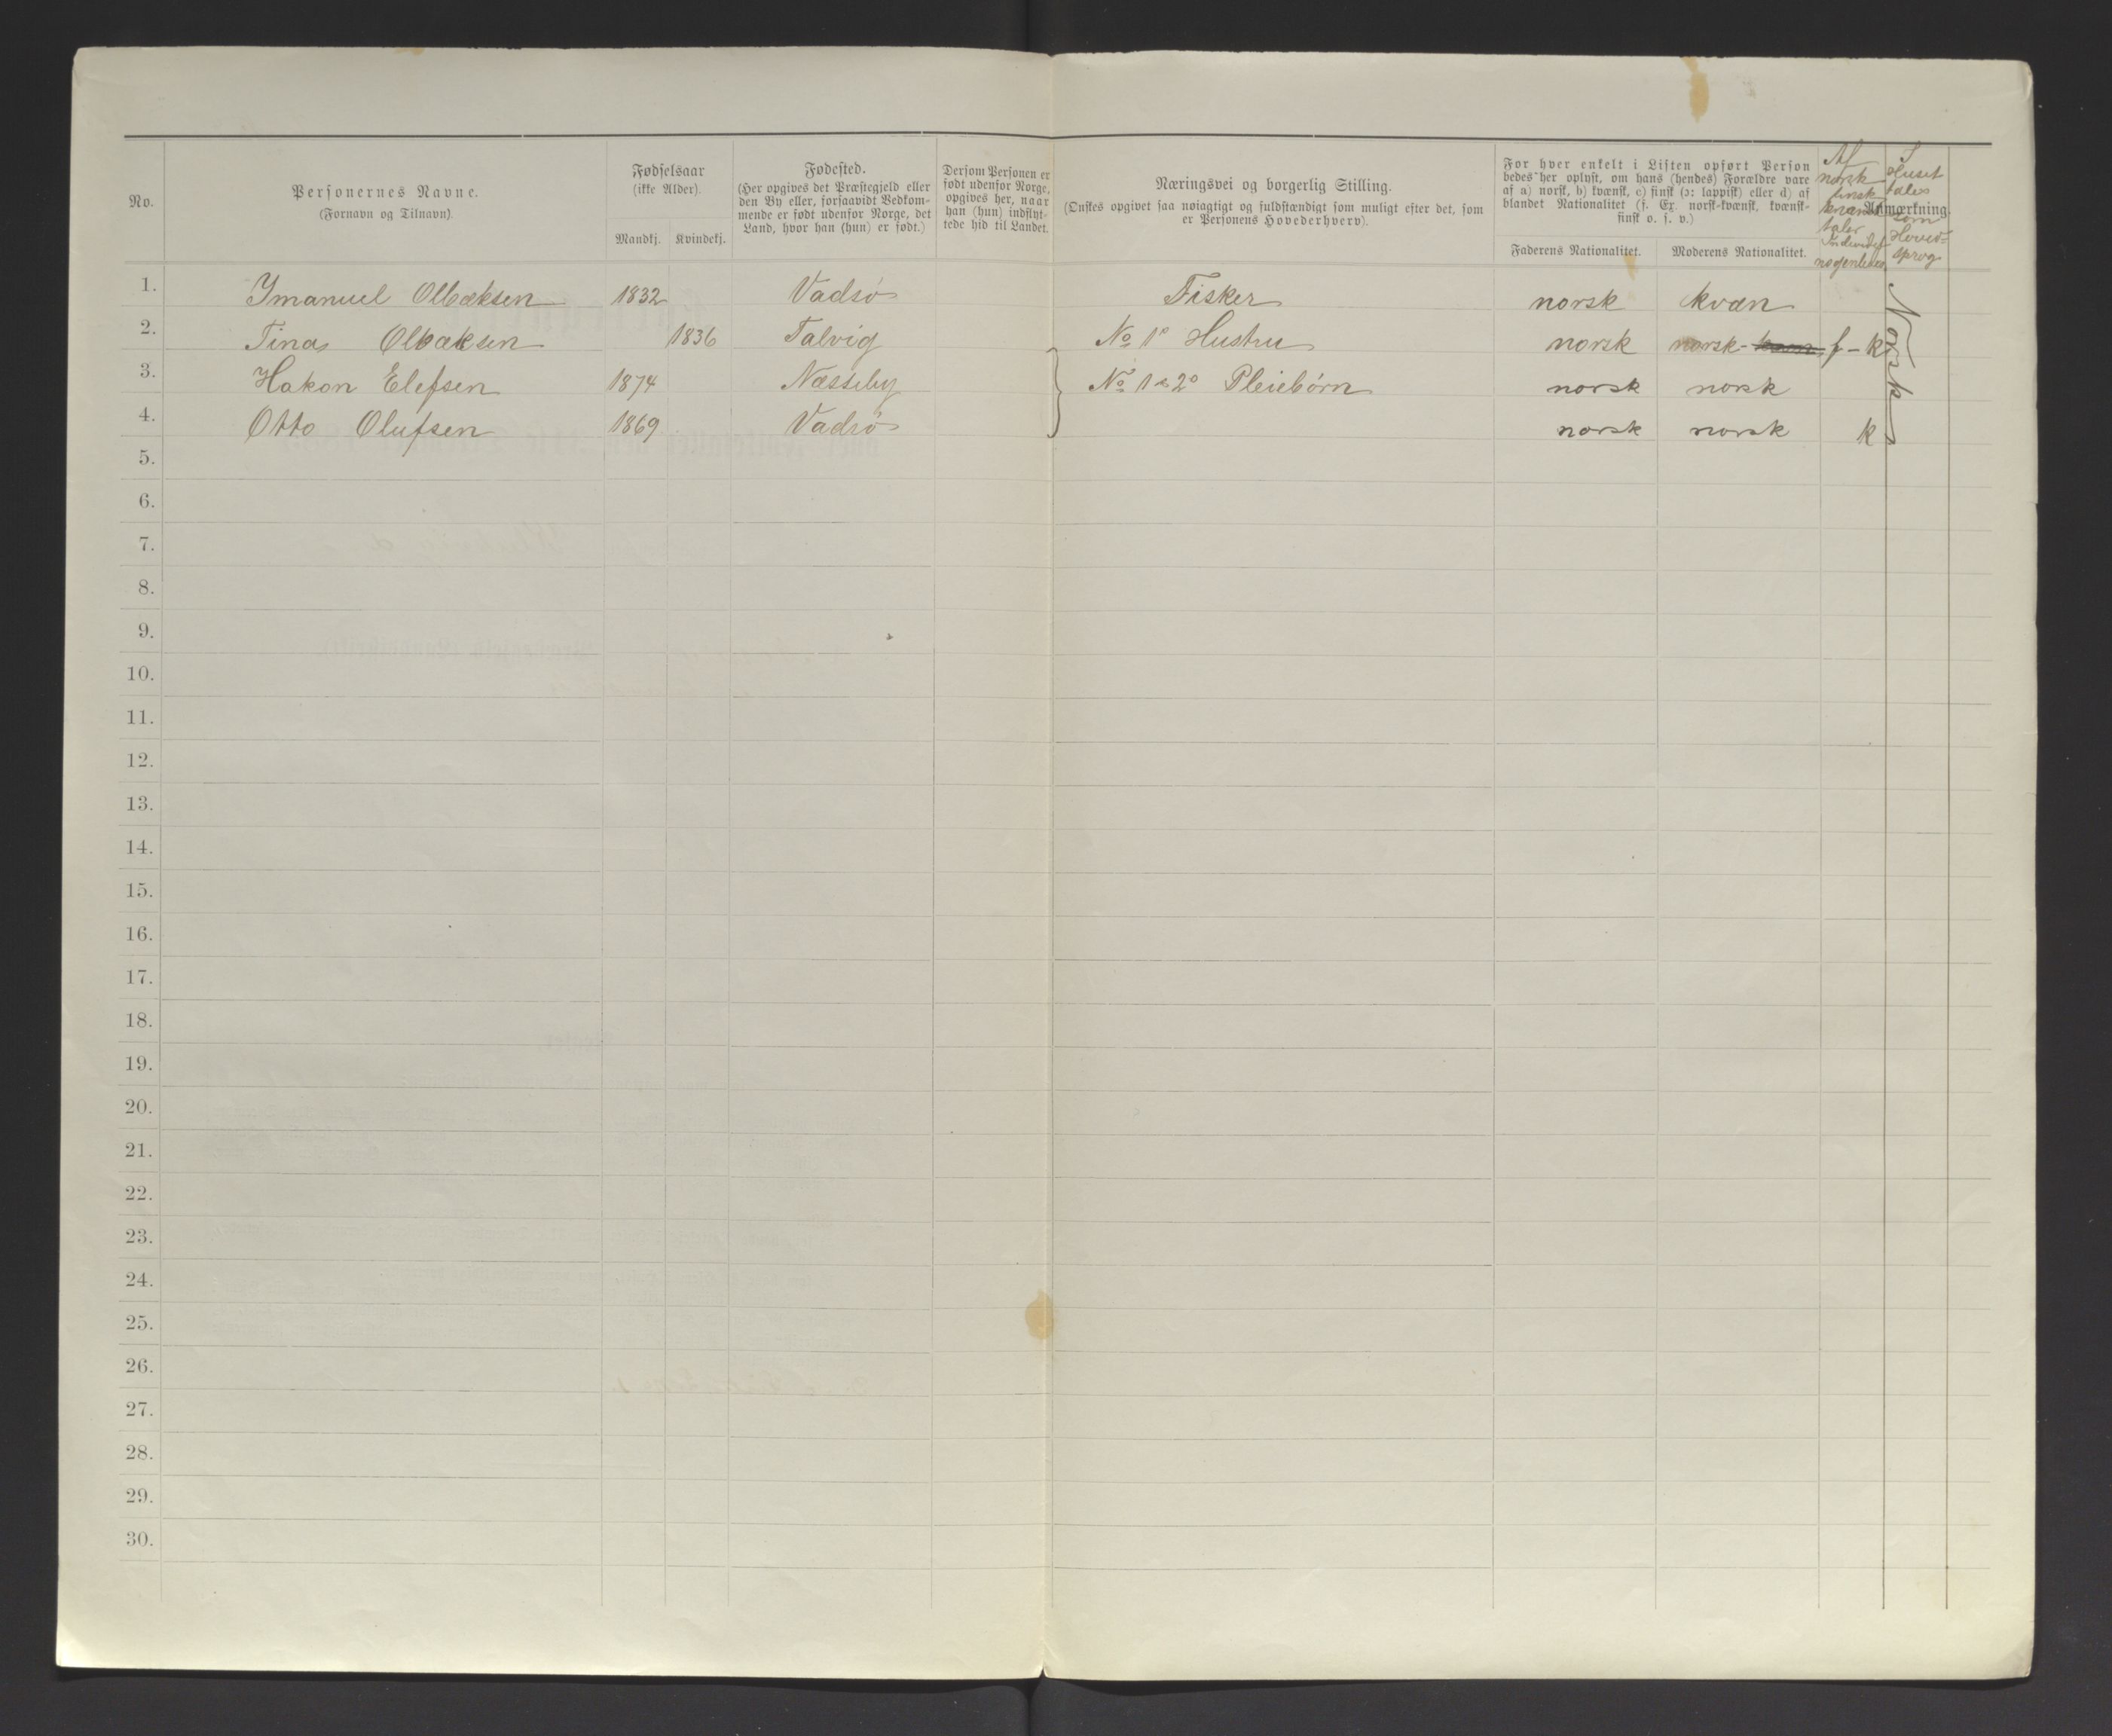 No.
Personernes Navne.
(Fornavn og Tilnavn).
Fødselsaar
(ikke Alder).
Mandkj. Kvindekj.
Fødested.
(Her opgives det Præstegjeld eller
den By eller, forsaavidt Vedkom-
mende er født udenfor Norge, det
Land, hvor han (hun) er født.)
Dersom Personen er
født udenfor Norge,
opgives her, naar
han (hun) indflyt-
tede hid til Landet.
Næringsvei og borgerlig Stilling.
(Ønskes opgivet saa nøiagtigt og fuldstændigt som muligt efter det, som
er Personens Hovederhverv).
For hver enkelt i Listen opført Person
bedes her oplyst, om hans (hendes) Forældre vare
af a) norsk, b) kvænsk, c) finsk (ɔ: lappisk) eller d) af
blandet Nationalitet (f. Ex. norsk-kvænsk, kvænsk-
finsk o. s. v.)
Faderens Nationalitet. Moderens Nationalitet.
Anmærkning.
Af
norsk
finsk
kvænsk
taler
Individet
nogenledes
I
Huset
tales
som
Hoved-
sprog
1. Imanuel Olbæksen 1832 Vadsö Fisker norsk kvæn
2. Tina Olbæksen 1836 Talvig No 1s Hustru norsk norsk- f-k
3. Hakon Elefsen 1874 Næsseby No 1 & 2s Pleiebörn norsk norsk
4. Otto Olufsen 1869 Vadsö norsk norsk k
Norsk
5.
6.
7.
8.
9.
10.
11.
12.
13.
14.
15.
16.
17.
18.
19.
20.
21.
22.
23.
24.
25.
26.
27.
28.
29.
30.